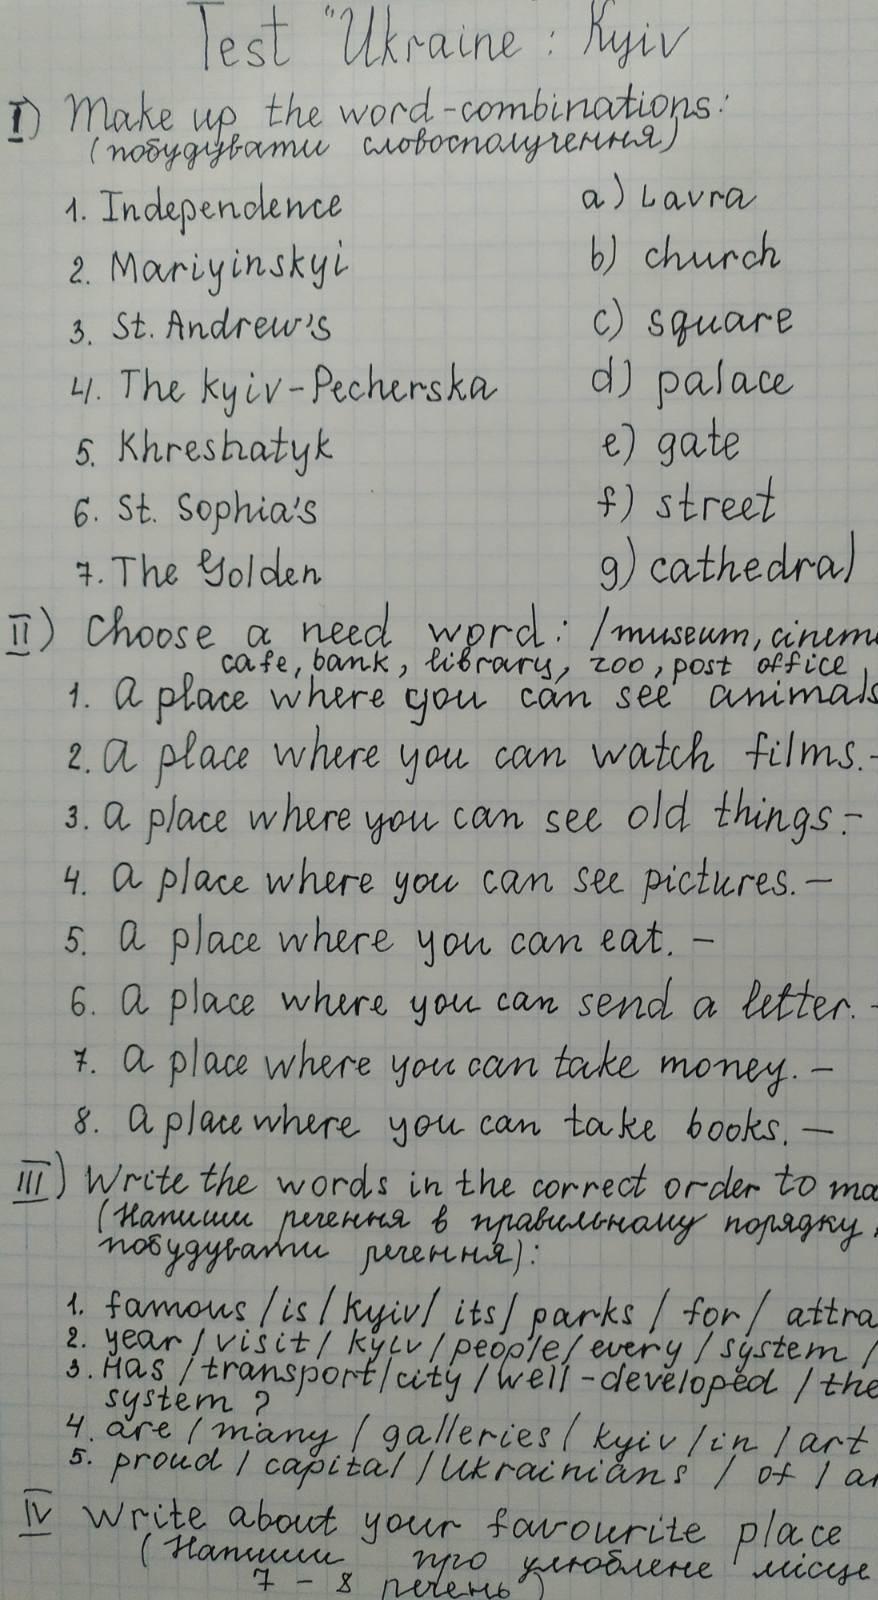 Test "Ukraine: Kyiv
I) Make up the word-combinations:
(побудувати словосполучення)
1. Independence a) Lavra
2. Mariyinskyi b) church
3. St. Andrew's c) square
4. The Kyiv-Pecherska d) palace
5. Khreshatyk e) gate
6. St. Sophia's f) street
7. The Golden g) cathedral
II) Choose a need word: /museum, cinem
cafe, bank, library, zoo, post office,
1. A place where you can see animals
2. A place where you can watch films. -
3. A place where you can see old things. -
4. A place where you can see pictures. -
5. A place where you can eat. -
6. A place where you can send a letter. -
7. A place where you can take money. -
8. A place where you can take books. -
III) Write the words in the correct order to ma
(Напиши речення в правильному порядку,
побудувати речення):
1. famous / is / Kyiv / its / parks / for / attra
2. year / visit / Kyiv / people / every / system /
3. Has / transport / city / well-developed / the
system ?
4. are / many / galleries / Kyiv / in / art
5. proud / capital / Ukrainians / of / ar
IV Write about your favourite place
(Напиши про улюблене місце
7 - 8 речень)